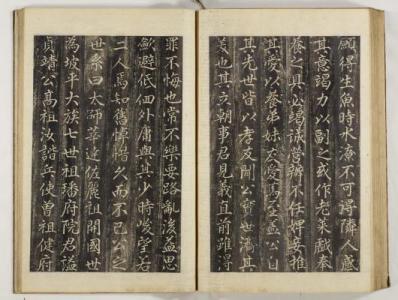 願得生魚時水凍不可得隣人感
其意竭力以副之或作老萊戲奉
養之具必竭誠營辦不任婢妾推
其愛以養弟妹友愛篤至盖公自
其先世皆以孝友聞公實世濟其
美也其立朝事君見義直前雖得
罪不悔也常不樂要路亂後益思
斂避低佪外庸與其少時峻望若
二人焉知舊悼惜久而不已公之
世系曰太師莘達佐麗祖開國世
為坡平大族七世祖璠府院君謚
貞靖公高祖汝諧兵使曾祖健府